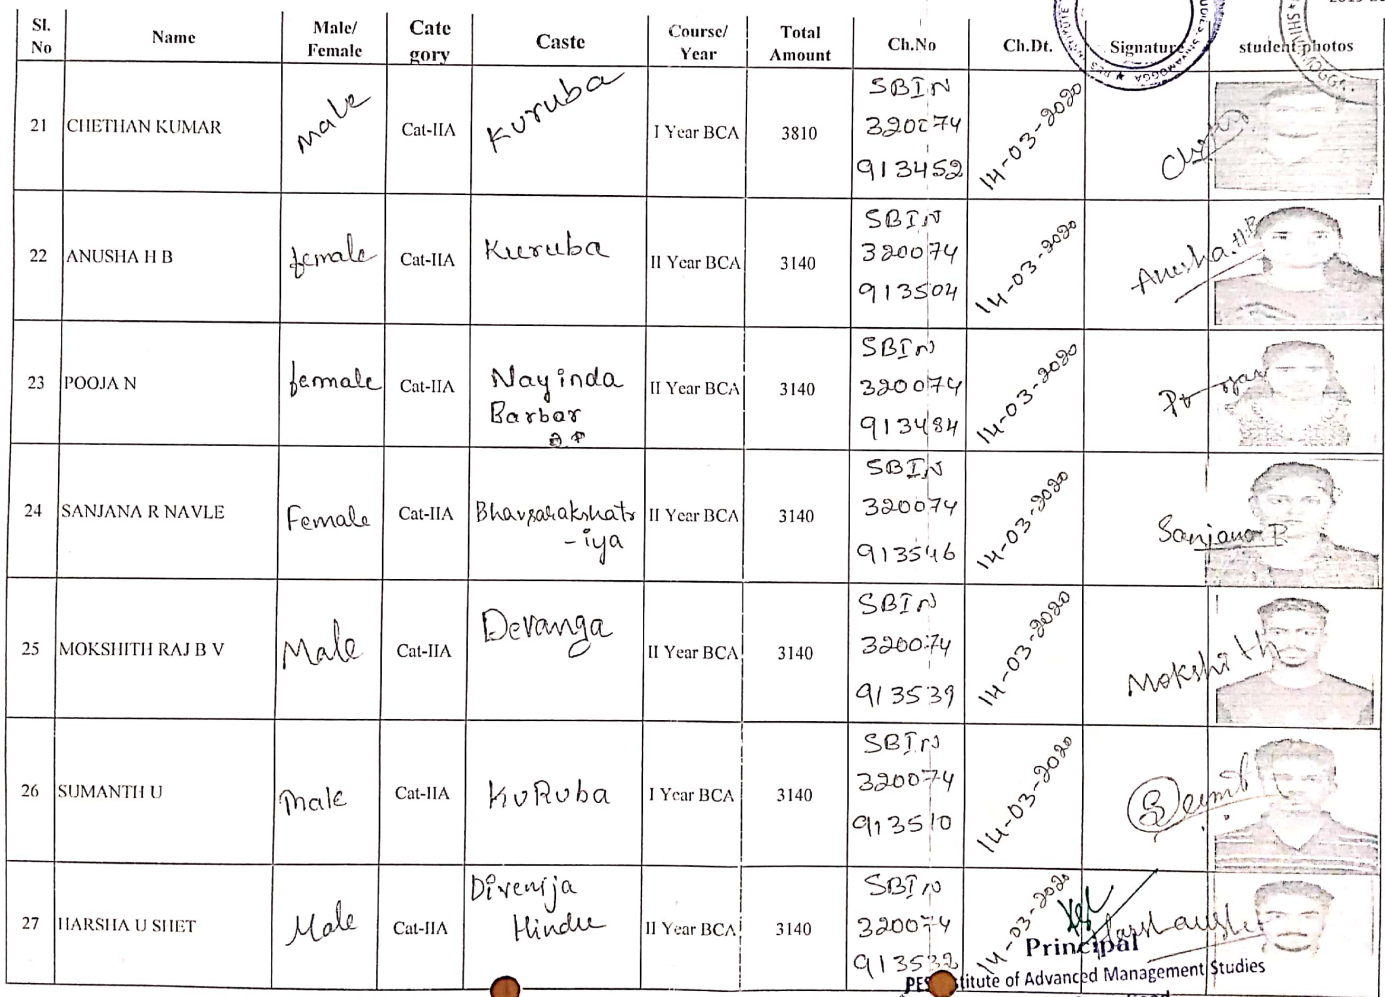 Sl. No Name Male/ Female Cate gory Caste Course/ Year Total Amount Ch.No Ch.Dt. Signature student photos
21 CHETHAN KUMAR male Cat-IIA Kuruba I Year BCA 3810 SBIN 320074 913452 14-03-2020
22 ANUSHA H B female Cat-IIA Kuruba II Year BCA 3140 SBIN 320074 913504 14-03-2020 Anusha.H.B
23 POOJA N female Cat-IIA Nayinda Barbar II Year BCA 3140 SBIN 320074 913484 14-03-2020
24 SANJANA R NAVLE Female Cat-IIA Bhavsarakshatr -iya II Year BCA 3140 SBIN 320074 913546 14-03-2020 Sanjana R
25 MOKSHITH RAJ B V Male Cat-IIA Devanga II Year BCA 3140 SBIN 320074 913539 14-03-2020 Mokshith
26 SUMANTH U male Cat-IIA KuRuba I Year BCA 3140 SBIN 320074 913510 14-03-2020
27 HARSHA U SHET Male Cat-IIA Hindu II Year BCA 3140 SBIN 320074 913532 14-03-2020
Principal
PES Institute of Advanced Management Studies